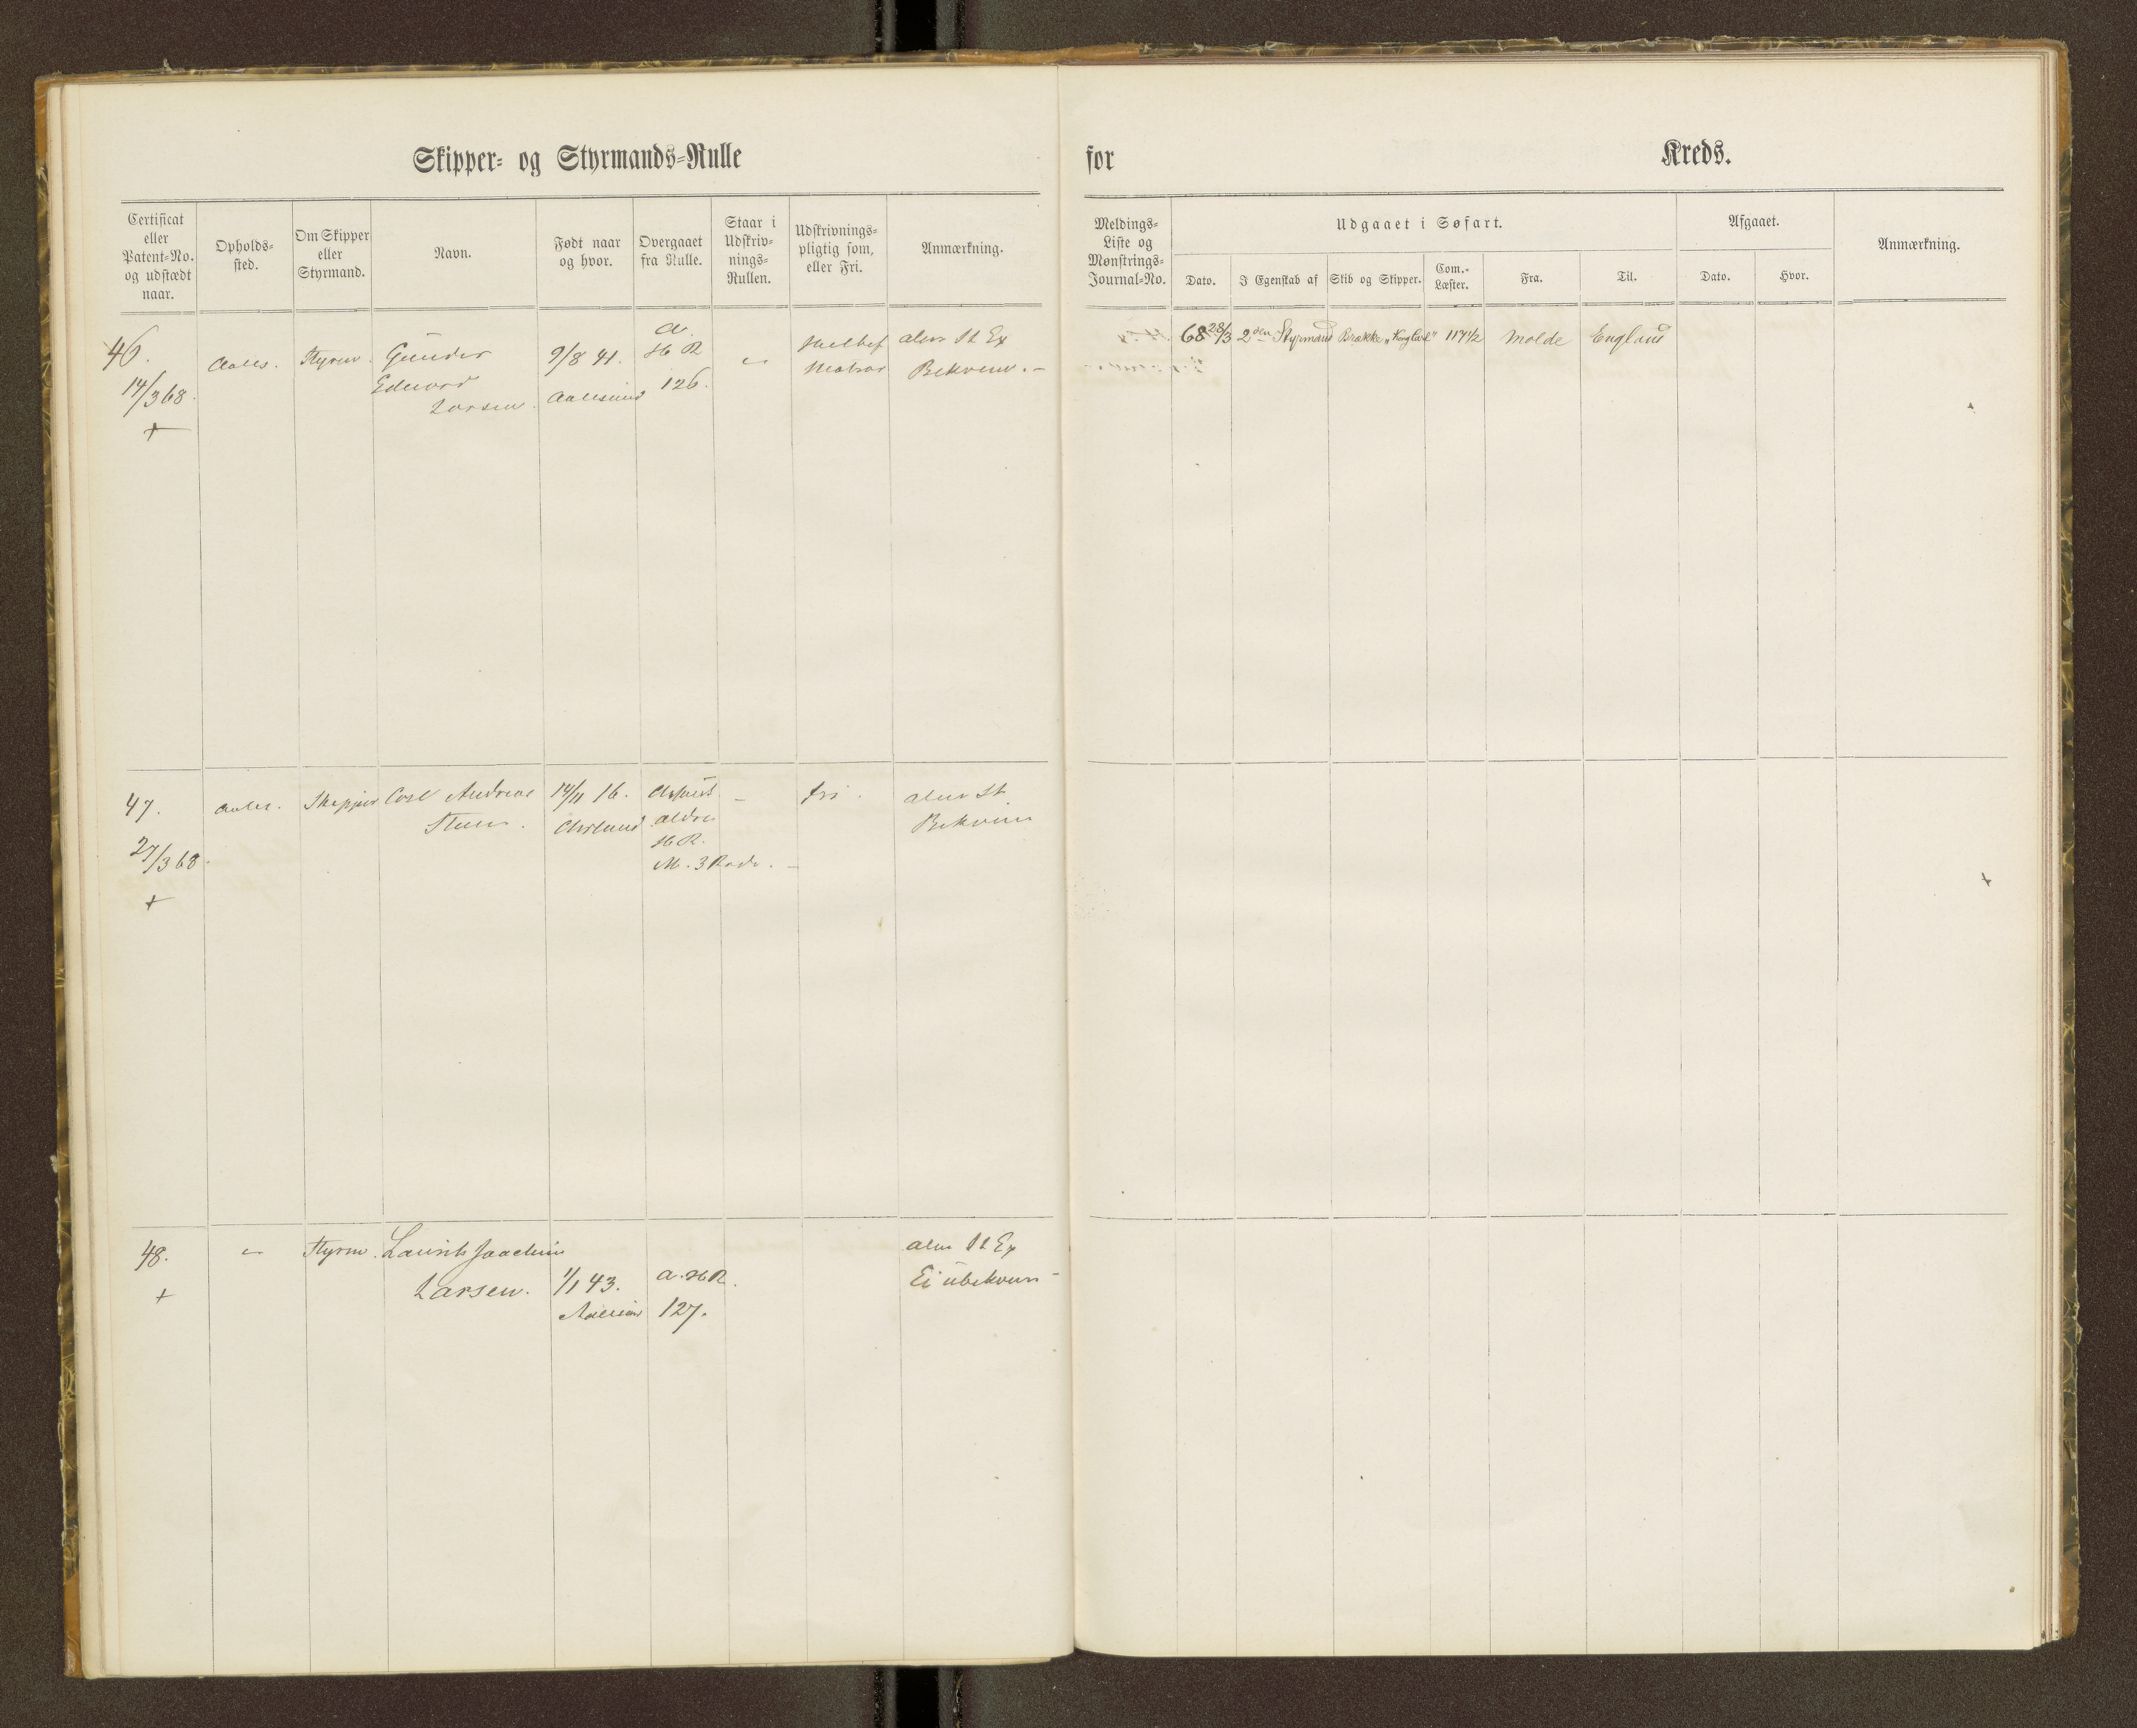 Skipper- og Styrmands-Rulle for Kreds.
Certificat eller Patent-No. og udstædt naar.
Opholds-sted.
Om Skipper eller Styrmand.
Navn.
Født naar og hvor.
Overgaaet fra Rulle.
Staar i Udskriv-nings-Rullen.
Udskrivnings-pligtig som, eller Fri.
Anmærkning.
Meldings-Liste og Mønstrings-Journal-No.
Udgaaet i Søfart.
Dato.
I Egenskab af
Skib og Skipper.
Com.-Læster.
Fra.
Til.
Afgaaet.
Dato.
Hvor.
Anmærkning.
46.
14/3 68.
+
Aales.
Styrm.
Gunder
Edevard
Larsen.
9/8 41.
Aalesund
a
H R
126.
"
Matros
alm St Ex
Bekvem. -
68 28/3
2den Styrmand
Brække "Kong Carl"
117 1/2
Molde
England
47.
27/3 68.
+
Aales.
Skipper
Carl Andreas
14/11 16.
aldre
H R.
M. 3
-
fri.
alm St
Bekvem
48.
+
"
Styrm.
Laurits Joachim
Larsen.
1/1 43.
Aalesund
a. H R.
127.
alm St Ex
Ei ubekvem -